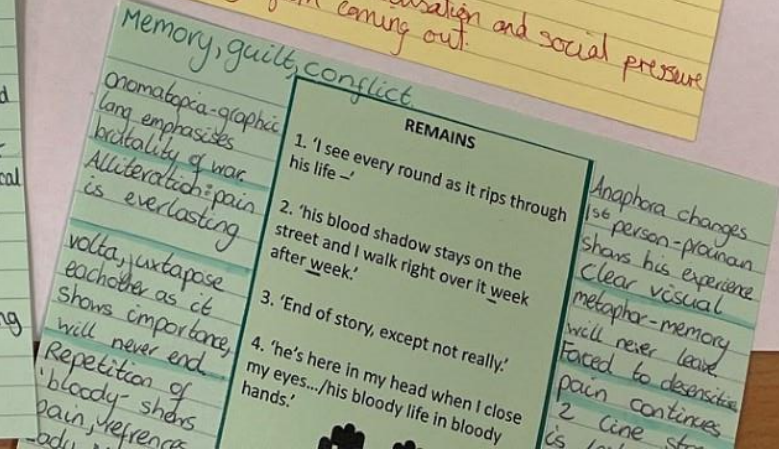 coming out.
and social pressure
Memory, guilt, conflict
onomatopoeia-graphic
lang emphasises
brutality of war.
Alliteration = pain
is everlasting
volta, juxtapose
eachother as it
shows importance,
will never end
Repetition of
'bloody- shows
pain,
REMAINS
1. 'I see every round as it rips through
his life –'
2. 'his blood shadow stays on the
street and I walk right over it week
after week.'
3. 'End of story, except not really.'
4. 'he's here in my head when I close
my eyes.../his bloody life in bloody
hands.'
Anaphora changes
1st person-pronoun
shows his experience
clear visual
metaphor-memory
will never leave
Forced to desensitise
pain continues
2
is